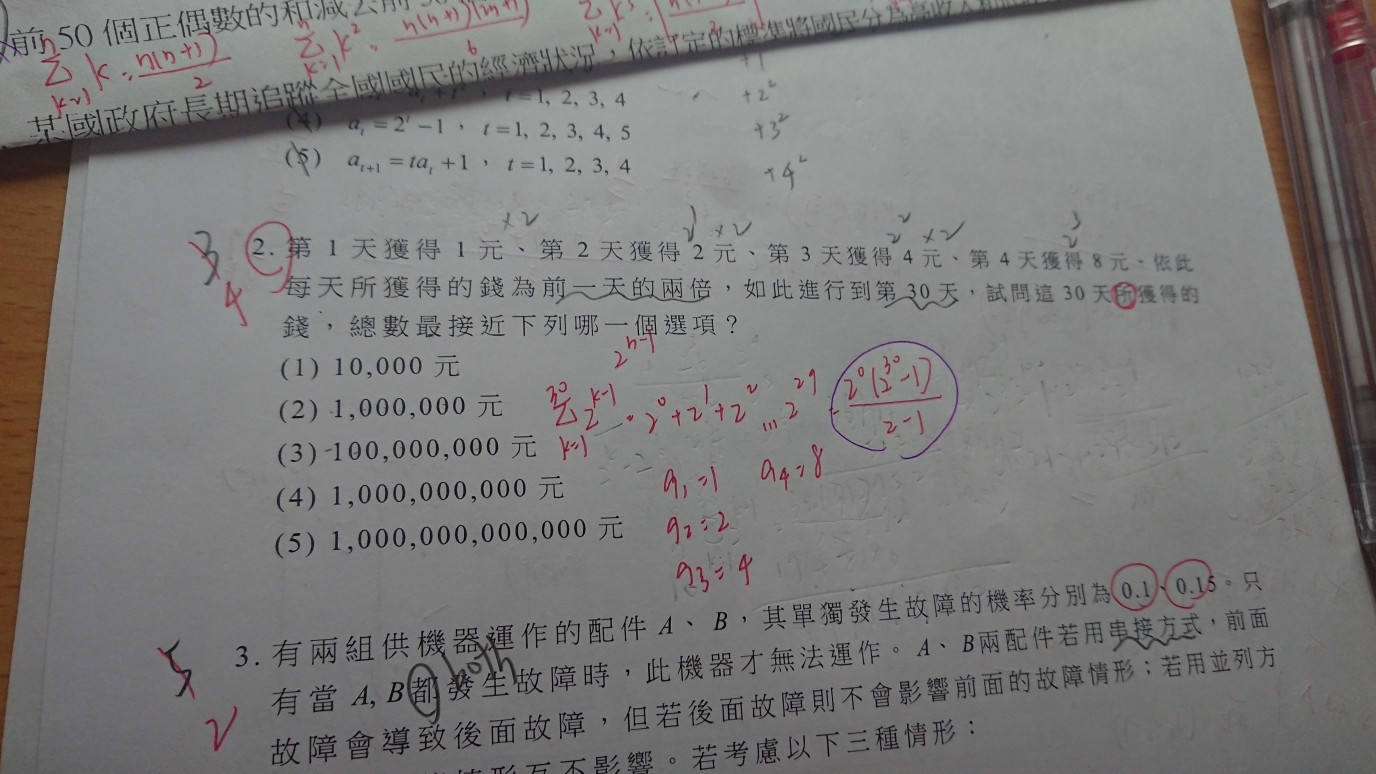 前 50 個正偶數的和減去前
n Σ k=1 k = n(n+1) / 2
n Σ k=1 k² = n(n+1) / 6
Σ k=1 k³
某國政府長期追蹤全國國民的經濟狀況,依訂定的標準將國民分為高收入
t=1, 2, 3, 4
+2²
(4) aₜ=2ᵗ-1, t=1, 2, 3, 4, 5
+3²
(5) aₜ₊₁=taₜ+1, t=1, 2, 3, 4
+4²
×2 1 ×2 2 ×2 3
3 2. 第 1 天獲得 1 元、第 2 天獲得 2 元、第 3 天獲得 4 元、第 4 天獲得 8 元、依此
4 每天所獲得的錢為前一天的兩倍,如此進行到第 30 天,試問這 30 天所獲得的
錢,總數最接近下列哪一個選項?
2ⁿ⁻¹
(1) 10,000 元
(2) 1,000,000 元
30 Σ k=1 2ᵏ⁻¹ = 2⁰+2¹+2² ... 2²⁹ = 2⁰(2³⁰-1) / 2-1
(3) 100,000,000 元
(4) 1,000,000,000 元
a₁=1 a₄=8
(5) 1,000,000,000,000 元
a₂=2
a₃=4
3. 有兩組供機器運作的配件 A、B,其單獨發生故障的機率分別為 0.1、0.15。只
5 有當 A, B 都發生故障時,此機器才無法運作。A、B兩配件若用串接方式,前面
both
2 故障會導致後面故障,但若後面故障則不會影響前面的故障情形;若用並列方
情形互不影響。若考慮以下三種情形: